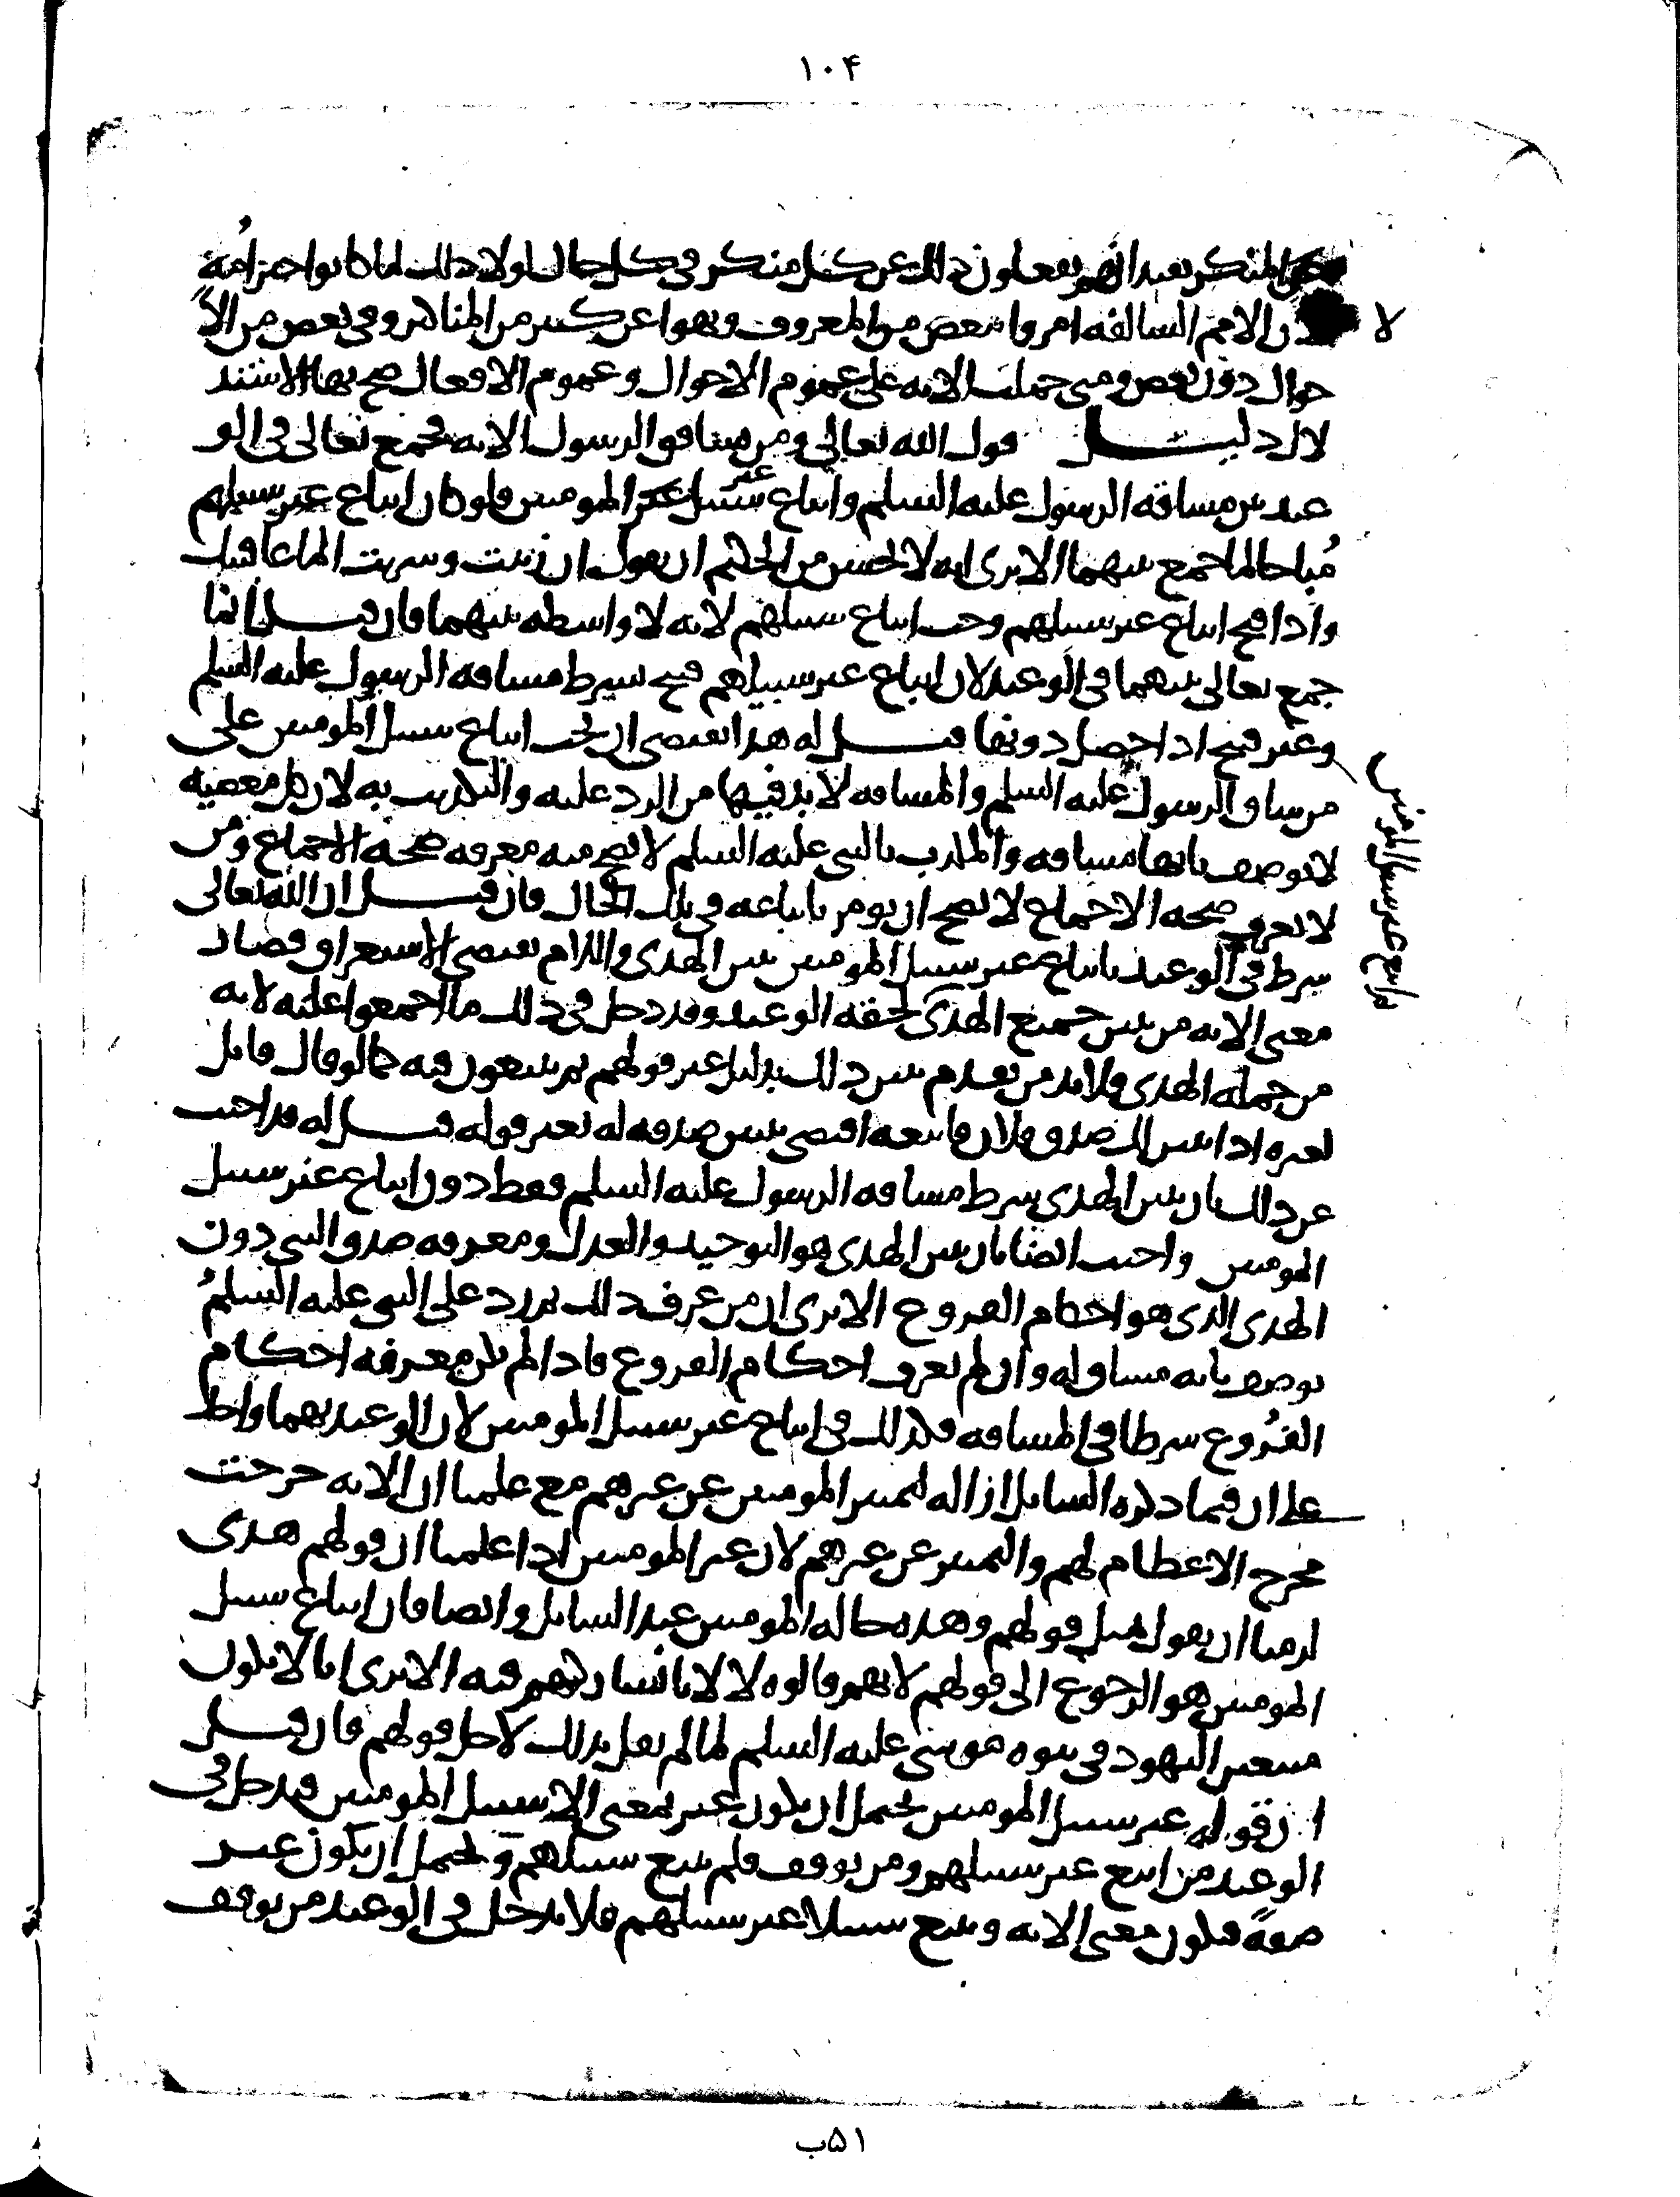 ١٠۴
عن المنكر يفيد انهم يفعلون ذلك عن كل منكر في كل حال لولا ذلك لما كانوا خير امة
لا ن الامم السالفه امروا ببعض من المعروف ونهوا عن كثير من المناكر وفي بعض من الا
حوال دون بعض ومتى حملت الايه على عموم الاحوال وعموم الافعال صح بها الاستد
لال دليل قول الله تعالى ومن يشاقق الرسول الايه فجمع تعالى في الو
عيد بين مشاقه الرسول عليه السلم واتباع غير سبيل المومنين فلو كان اتباع غير سبيلهم
مُباحا لما جمع بينهما الا يرى انه لا يحسن من الحكيم ان يقول ان زنيت وشربت الما عاقبتك
واذا قبح اتباع غير سبيلهم وجب اتباع سبيلهم لانه لا واسطه بينهما فان قيل انما
جمع تعالى بينهما في الوعيد لان اتباع غير سبيلهم قبيح بشرط مشاقه الرسول عليه السلم
وغير قبيح اذا حصل دونها قيل له هذا يقتضي ان يجب اتباع سبيل المومنين على
من شاق الرسول عليه السلم والمشاقه لا بد فيها من الرد عليه والتكذيب به لان كل معصيه
لا توصف بانها مشاقه والمكذب بالنبي عليه السلم لا يصح منه معرفه صحه الاجماع ومن
لا يعرف صحه الاجماع لا يصح ان يومر باتباعه في تلك الحال فان قيل ان الله تعالى
شرط في الوعيد باتباع غير سبيل المومنين تبين الهدى واللام تقتضي الاستغراق فصار
معنى الايه من تبين جميع الهدى لحقه الوعيد وقد دخل في ذلك ما اجمعوا عليه لانه
من جمله الهدى فلا بد من تقدم تبين ذلك بدليل غير قولهم ثم يتبعون فيه كما لو قال قايل
لغيره اذا تبين لك صدق فلان فاتبعه اقتضى تبين صدقه له بغير قوله قيل له قد اجيب
عن ذلك بان تبين الهدى شرط مشاقه الرسول عليه السلم فقط دون اتباع غير سبيل
المومنين واجيب ايضا بان تبين الهدى هو التوحيد والعدل ومعرفه صدق النبي دون
الهدى الذي هو احكام الفروع الا يرى ان من عرف ذلك ثم رد على النبي عليه السلمُ
يوصف بانه مشاق له وان لم يعرف احكام الفروع فاذا لم تكن معرفه احكام
الفُروع شرطا في المشاقه فكذلك في اتباع غير سبيل المومنين لان الوعيد بهما واحد
على ان فيما ذكره السايل ازاله لتميز المومنين عن غيرهم مع علمنا ان الايه خرجت
مخرج الاعظام لهم والتميز عن غيرهم لان غير المومنين اذا علمنا ان قولهم هدى
لزمنا ان نقول مثل قولهم وهذه حاله المومنين عند السايل وايضا فان اتباع سبيل
المومنين هو الرجوع الى قولهم لانهم قالوه لا لانا نشاركهم فيه الا يرى انا لا نكون
متبعين اليهود في نبوه موسى عليه السلم لما لم نقل بذلك لاجل قولهم فان قيل
ان قوله غير سبيل المومنين يحتمل ان يكون غير بمعنى الا سبيل المومنين فيدخل في
الوعيد من اتبع غير سبيلهم ومن توقف فلم يتبع سبيلهم ويحتمل ان يكون غير
صفةً فيكون معنى الايه ويتبع سبيلا غير سبيلهم فلا يدخل في الوعيد من توقف
من اتبع غير سبيل المومنين
٥١ب